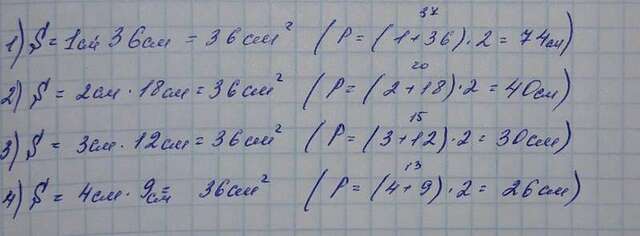 37
1) S = 1см 36см = 36см² ( P = (1+36)·2 = 74см)
20
2) S = 2см · 18см = 36см² ( P = (2+18)·2 = 40см)
15
3) S = 3см · 12см = 36см² ( P = (3+12)·2 = 30см)
13
4) S = 4см · 9см = 36см² ( P = (4+9)·2 = 26см)